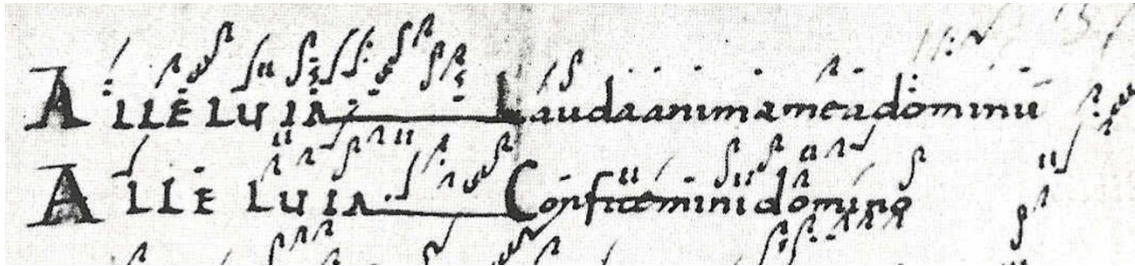 ALLELUIA Lauda anima mea dominū
ALLELUIA Confitemini domino